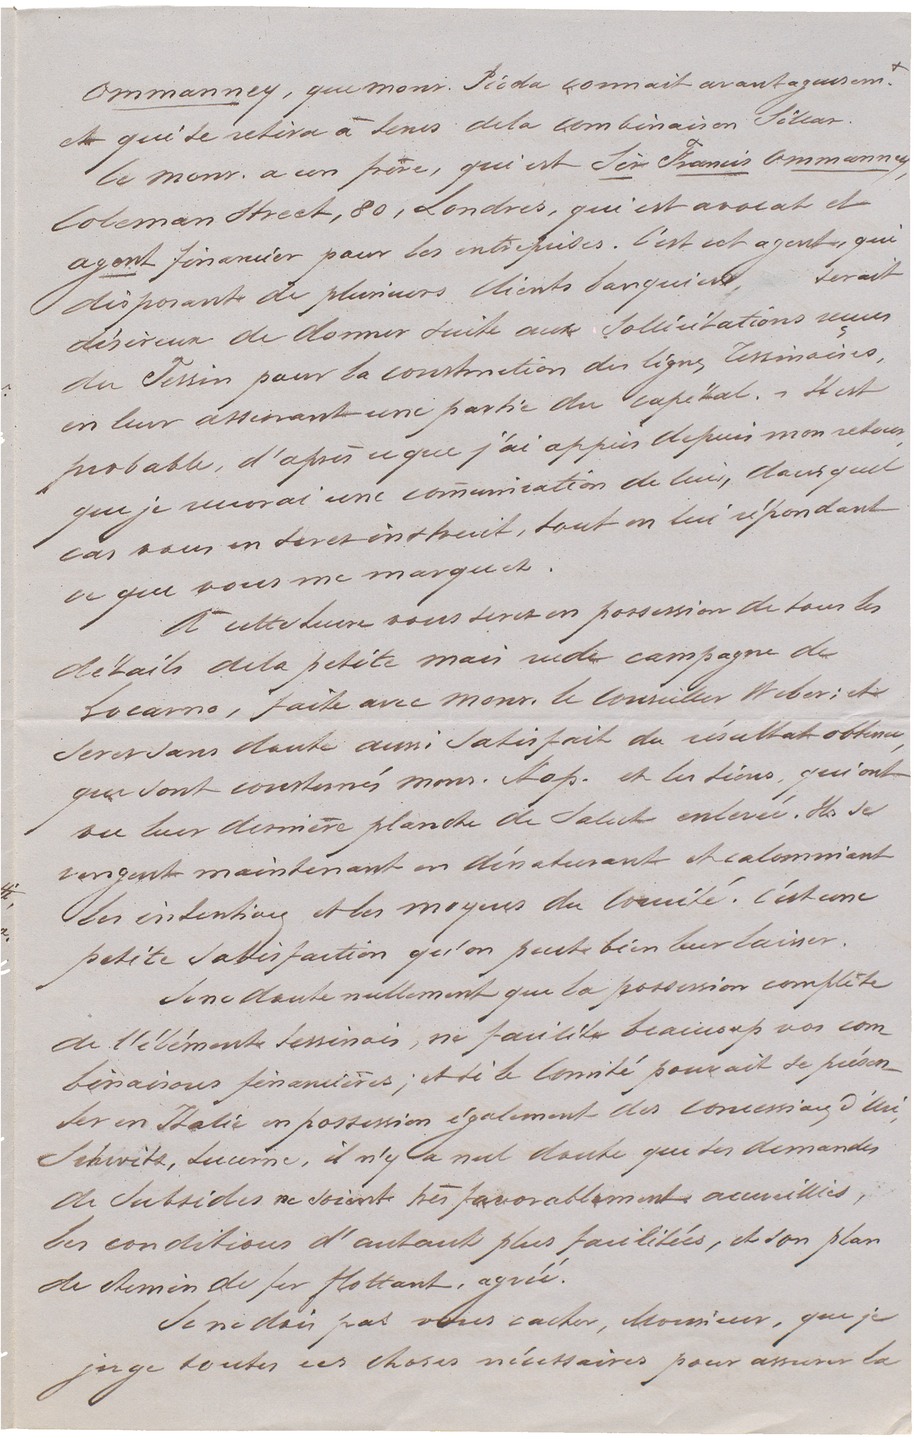 Ommanney, que monr. Pioda connait avantageusemt.
et qui se retira à tems dela combinaison Sillar.
Ce monr. a un frère, qui est Sir Francis Ommanney,
Coleman Street, 80, Londres, qui est avocat et
agent financier pour les entreprises. C'est cet agent, qui
disposant de plusieurs clients banquiers, serait
désireux de donner suite aux sollicitations reçues
du Tessin pour la construction des lignes Tessinoises,
en leur assurant une partie du capital. - Il est
probable, d'après ce que j'ai appris depuis mon retour,
que je recevrai une comunication de lui, dans quel
cas vous en serez instruit, tout en lui répondant
ce que vous me marquez.
A cette heure vous serez en possession de tous les
détails dela petite mais rude campagne de
Locarno, faite avec monr. le Conseiller Weber; et
serez sans doute aussi satisfait du résultat obtenu,
que sont consternés mons. Nap. et les siens, qui ont
vu leur dernière planche de salut enlevée. Ils se
vengent maintenant en dénaturant et calomniant
les intentions et les moyens du Comité. C'est une
petite satisfaction qu'on peut bien leur laisser.
Je ne doute nullement que la possession complète
de l'élément tessinois, ne facilite beaucoup vos com-
binaisons financières; et si le Comité pouvait se présen-
ter en Italie en possession également des concessions d'Uri,
Schwitz, Lucerne, il n'y a nul doute que ses demandes
de subsides ne soient très favorablement accueillies,
les conditions d'autant plus facilitées, et son plan
de chemin de fer flottant, agréé.
Je ne dois pas vous cacher, Monsieur, que je
juge toutes ces choses nécessaires pour assurer la